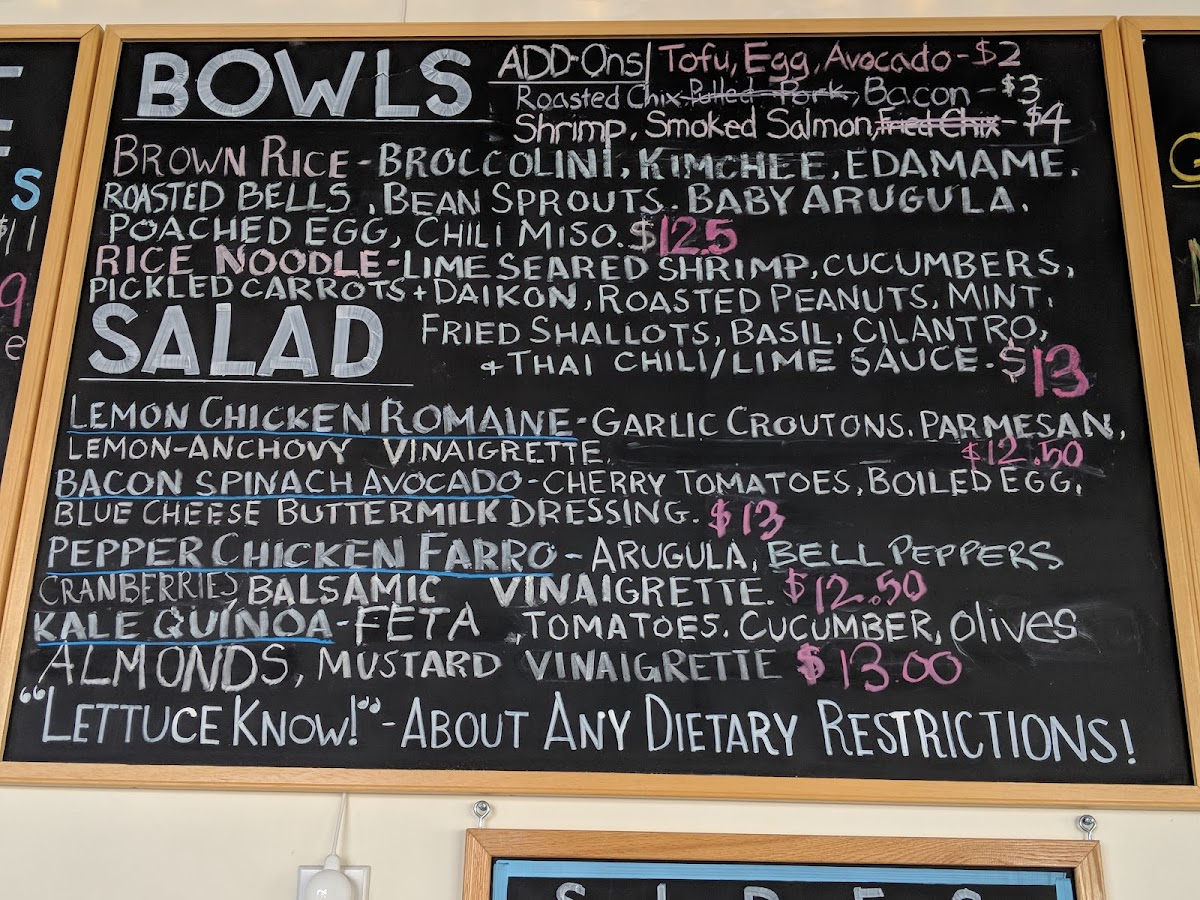 BOWLS
ADD-Ons| Tofu, Egg, Avocado - $2
Roasted Chix, Pulled Pork, Bacon - $3
Shrimp, Smoked Salmon, Fried Chix - $4
BROWN RICE - BROCCOLINI, KIMCHEE, EDAMAME,
ROASTED BELLS, BEAN SPROUTS, BABY ARUGULA,
POACHED EGG, CHILI MISO. $12.5
RICE NOODLE - LIME SEARED SHRIMP, CUCUMBERS,
PICKLED CARROTS + DAIKON, ROASTED PEANUTS, MINT,
FRIED SHALLOTS, BASIL, CILANTRO,
+ THAI CHILI/LIME SAUCE. $13
SALAD
LEMON CHICKEN ROMAINE - GARLIC CROUTONS, PARMESAN,
LEMON-ANCHOVY VINAIGRETTE $12.50
BACON SPINACH AVOCADO - CHERRY TOMATOES, BOILED EGG,
BLUE CHEESE BUTTERMILK DRESSING. $13
PEPPER CHICKEN FARRO - ARUGULA, BELL PEPPERS
CRANBERRIES, BALSAMIC VINAIGRETTE. $12.50
KALE QUINOA - FETA, TOMATOES, CUCUMBER, Olives
ALMONDS, MUSTARD VINAIGRETTE $13.00
"LETTUCE KNOW!" - ABOUT ANY DIETARY RESTRICTIONS!
S
$11
9
e
G